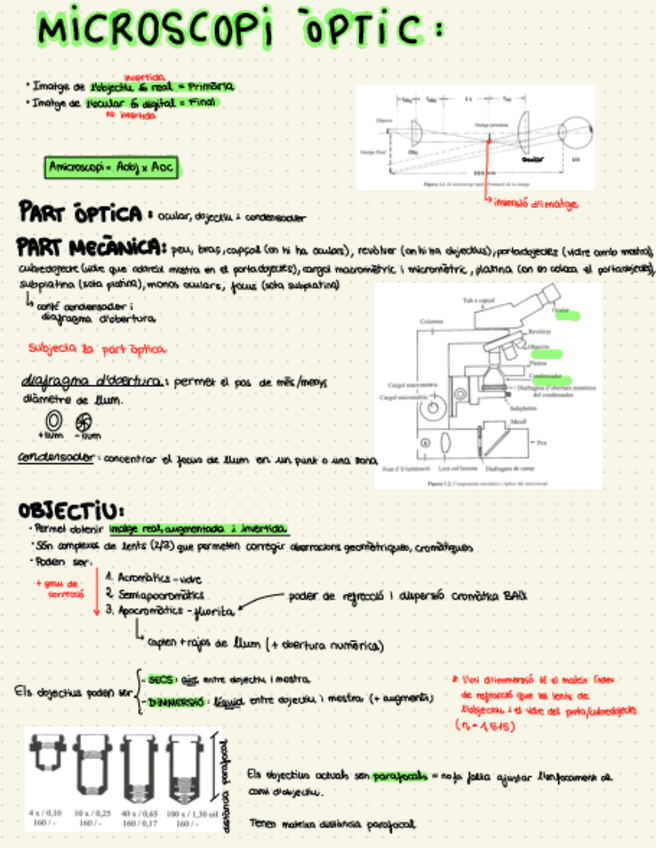 MICROSCOPI ÒPTIC:
invertida
· Imatge de l'objectiu és real = Primària
· Imatge de l'ocular és digital = Final
no invertida
Amicroscopi = Aobj x Aoc
Objecte
Imatge primària
Imatge final
Obj
Ocular
Ull
250 mm
Figura 1.1. El microscopi òptic: formació de la imatge
inversió d'imatge
PART ÒPTICA: ocular, objectiu i condensador
PART MECÀNICA: peu, braç, capçal (on hi ha oculars), revòlver (on hi ha objectius), portaobjectes (vidre amb mostra),
cubreobjecte (vidre que cobreix mostra en el portaobjectes), cargol macromètric i micromètric, platina (on es coloca el portaobjectes),
subplatina (sota platina), monos oculars, focus (sota subplatina)
conté condensador i
diafragma d'obertura
subjecta la part òptica
diafragma d'obertura: permet el pas de més/menys
diàmetre de llum.
+llum -llum
condensador: concentrar el focus de llum en un punt o una zona
Tub o capçal
Ocular
Columna
Revòlver
Objectiu
Platina
Condensador
Cargol macromètric
Diafragma d'obertura numèrica
del condensador
Cargol micromètric
Subplatina
Mirall
Peu
Font d'il·luminació
Lent col·lectora
Diafragma de camp
Figura 1.2. Components mecànics i òptics del microscopi
OBJECTIU:
· Permet obtenir imatge real, augmentada i invertida.
· Són complexos de lents (2/3) que permeten corregir aberracions geomètriques, cromàtiques
· Poden ser:
+ grau de
correcció
1. Acromàtics - vidre
2. Semiapocromàtics
3. Apocromàtics - fluorita
poder de refracció i dispersió cromàtica BAIX
capten + rajos de llum (+ obertura numèrica)
Els objectius poden ser
- SECS: aire entre objectiu i mostra.
- D'IMMERSIÓ: líquid entre objectiu i mostra (+ augments)
* L'oli d'immersió té el mateix índex
de refracció que les lents de
l'objectiu i el vidre del porta/cubreobjecte
(n = 1,515)
4 x / 0,10
160 / -
10 x / 0,25
160 / -
40 x / 0,65
160 / 0,17
100 x / 1,30 oil
160 / -
distància parafocal
Els objectius actuals són parafocals = no fa falta ajustar l'enfocament al
canvi d'objectiu.
Tenen mateixa distància parafocal